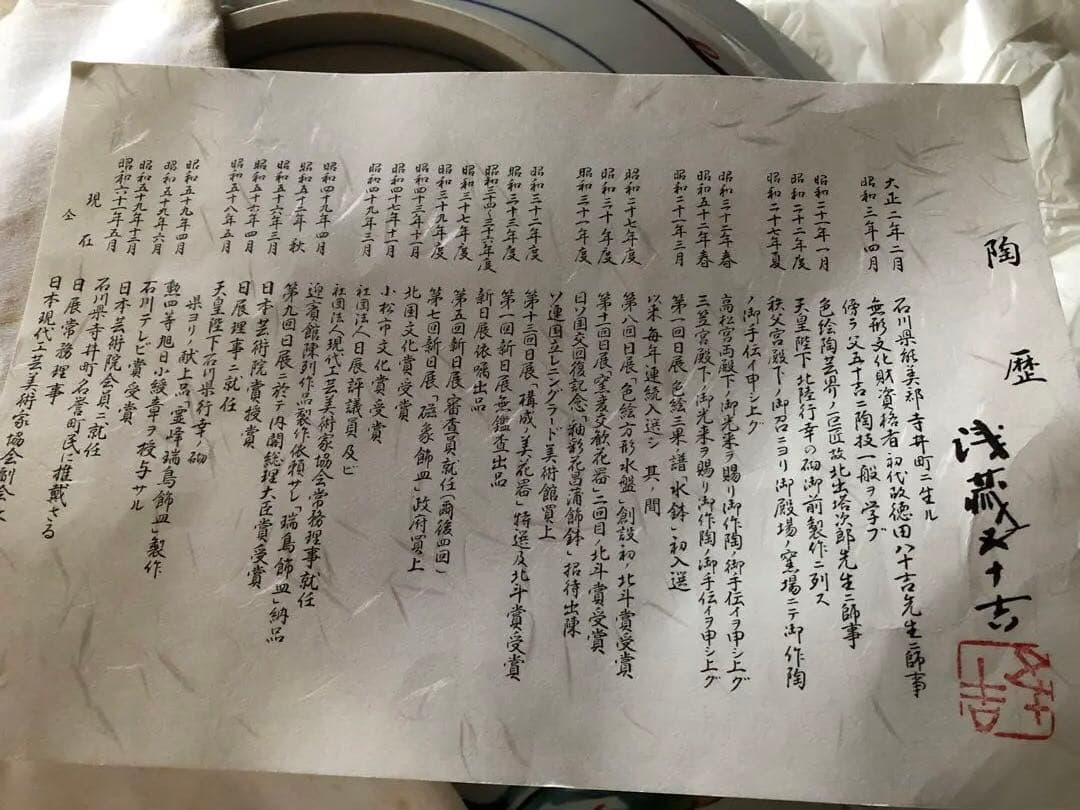 陶歴
浅蔵五十吉
大正二年二月 石川県能美郡寺井町ニ生ル
昭和三年四月 無形文化財資格者初代故徳田八十吉先生ニ師事
傍ラ父五十吉ニ陶技一般ヲ学ブ
昭和二十一年一月 色絵陶芸界ノ巨匠故北出塔次郎先生ニ師事
昭和二十二年度 天皇陛下北陸行幸の砌御前製作ニ列ス
昭和二十七年夏 秩父宮殿下ノ御召ニヨリ御殿場ノ窯場ニテ御作陶
ノ御手伝イ申シ上グ
昭和三十二年春 高松宮両殿下ノ御光来ヲ賜リ御作陶ノ御手伝イヲ申シ上グ
昭和五十二年春 三笠宮殿下ノ御光来ヲ賜リ御作陶ノ御手伝イヲ申シ上グ
昭和二十一年三月 第一回日展「色絵三果ノ譜」水鉢」初入選
以来毎年連続入選シ其ノ間
昭和二十七年度 第八回日展「色絵方形水盤」創設初ノ北斗賞受賞
昭和三十年度 第十一回日展「窯麦交歓花器」二回目ノ北斗賞受賞
昭和三十一年度 日ソ国交回復記念「釉彩花菖蒲飾鉢」招待出陳
ソ連国立レニングラード美術館買上
昭和三十二年度 第十三回日展「構成ノ美花器」特選及北斗賞受賞
昭和三十三年度 第一回新日展無鑑査出品
昭和三十四〜三十六年度 新日展依嘱出品
昭和三十七年度 第五回新日展審査員就任(爾後四回)
昭和三十九年度 第七回新日展「磁象飾皿」政府買上
昭和四十三年十一月 北国文化賞受賞
昭和四十七年十一月 小松市文化賞受賞
昭和四十九年三月 社団法人日展評議員及ビ
社団法人現代工芸美術家協会常務理事就任
昭和四十九年四月 迎賓館陳列作品製作依頼サレ「瑞鳥飾皿」納品
昭和五十二年秋 第九回日展ニ於テ内閣総理大臣賞受賞
昭和五十六年三月 日本芸術院賞授賞
昭和五十六年四月 日展理事ニ就任
昭和五十八年五月 天皇陛下石川県行幸ノ砌
県ヨリノ献上品「霊峰瑞鳥飾皿」製作
昭和五十九年四月 勲四等旭日小綬章ヲ授与サル
昭和五十九年六月 石川テレビ賞受賞
昭和五十九年十二月 日本芸術院会員ニ就任
昭和六十一年五月 石川県寺井町名誉町民に推戴さる
現在 日展常務理事
全 日本現代工芸美術家協会副会長